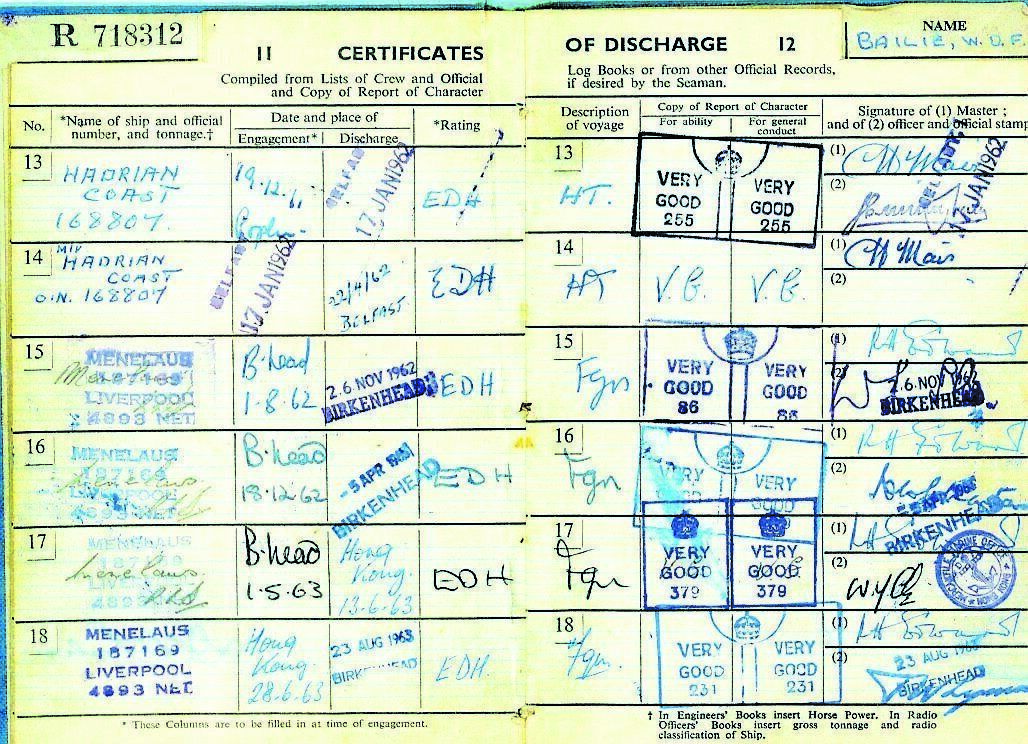 R 718312
11 CERTIFICATES
Compiled from Lists of Crew and Official
and Copy of Report of Character
No.
*Name of ship and official
number, and tonnage.†
Date and place of
Engagement* Discharge
*Rating
13
HADRIAN
COAST
168807.
19.12.61
BELFAST
17 JAN 1962
EDH
14
M/V
HADRIAN
COAST
O.N. 168807
BELFAST
17 JAN 1962
22/4/62
BELFAST.
EDH
15
MENELAUS
187169
LIVERPOOL
4893 NET.
B·head
1·8·62
26 NOV 1962
BIRKENHEAD
EDH
16
MENELAUS
187169
LIVERPOOL
4893 NET.
B·head
18·12·62
BIRKENHEAD
EDH
17
MENELAUS
B·head
1·5·63
Hong
Kong.
13-6-63
EDH
18
MENELAUS
187169
LIVERPOOL
4893 NET.
Hong
Kong.
28·6·63
23 AUG 1963
BIRKENHEAD
EDH.
* These Columns are to be filled in at time of engagement.
OF DISCHARGE 12
NAME
BAILIE, W.D.F.
Log Books or from other Official Records,
if desired by the Seaman.
Description
of voyage
Copy of Report of Character
For ability For general
conduct
Signature of (1) Master ;
and of (2) officer and official stamp
13
HT.
VERY
GOOD
255
VERY
GOOD
255
(1)
(2)
17 JAN 1962
14
HT
V.G.
V.G.
(1)
(2)
15
Fgn
VERY
GOOD
86
VERY
GOOD
86
(1)
(2)
26 NOV 1962
BIRKENHEAD
16
Fgn
VERY
GOOD
VERY
GOOD
(1)
(2)
BIRKENHEAD
17
Fgn
VERY
GOOD
379
VERY
GOOD
379
(1)
(2)
18
Fgn.
VERY
GOOD
231
VERY
GOOD
231
(1)
(2)
23 AUG 1963
BIRKENHEAD
† In Engineers' Books insert Horse Power. In Radio
Officers' Books insert gross tonnage and radio
classification of Ship.